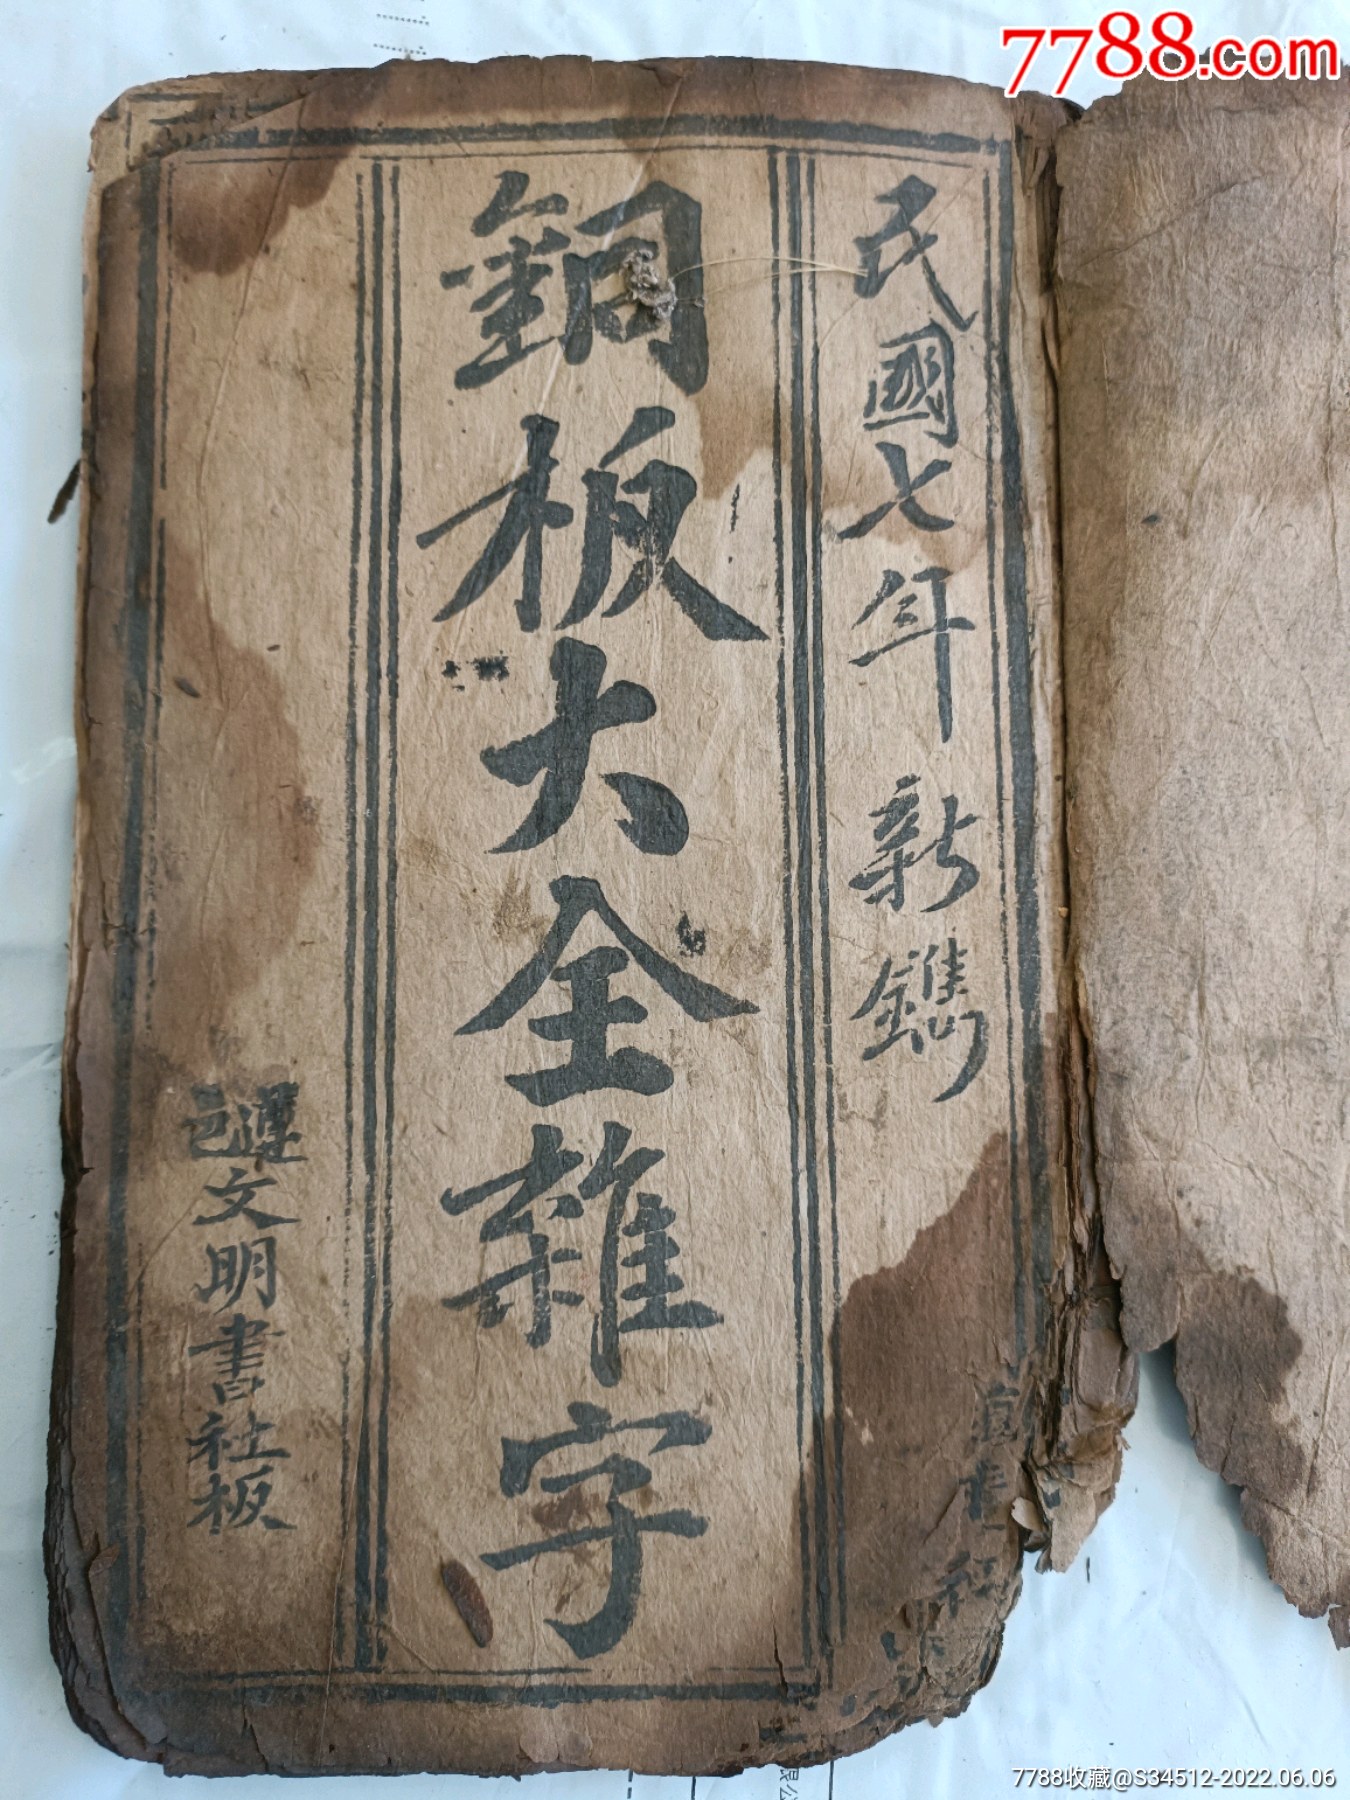 7788.com
民國七年新鐫
銅板大全雜字
遵邑文明書社板
7788收藏@S34512-2022.06.06